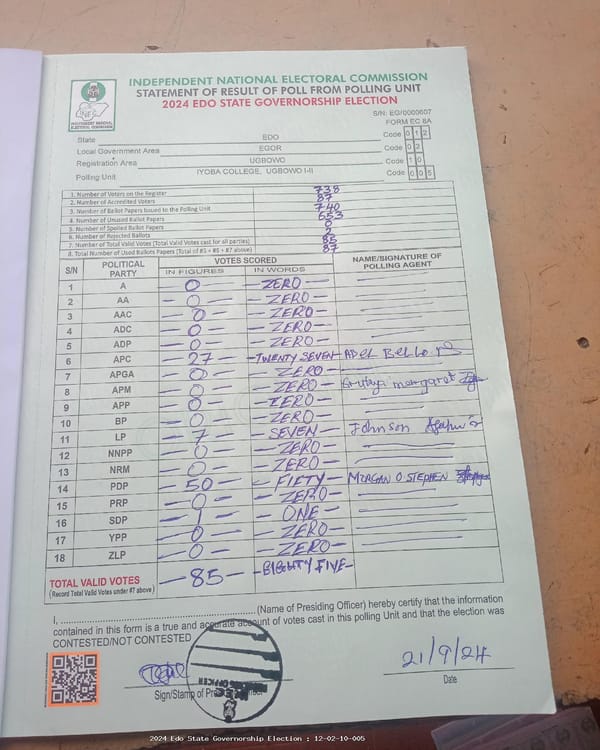 INDEPENDENT NATIONAL ELECTORAL COMMISSION
STATEMENT OF RESULT OF POLL FROM POLLING UNIT
2024 EDO STATE GOVERNORSHIP ELECTION
S/N: EG/0000607
FORM EC 8A
State EDO Code 0 1 2
Local Government Area EGOR Code 0 2
Registration Area UGBOWO Code 1 0
Polling Unit IYOBA COLLEGE, UGBOWO I-II Code 0 0 5
1. Number of Voters on the Register 738
2. Number of Accredited Voters 87
3. Number of Ballot Papers Issued to the Polling Unit 740
4. Number of Unused Ballot Papers 653
5. Number of Spoiled Ballot Papers 0
6. Number of Rejected Ballots 2
7. Number of Total Valid Votes (Total Valid Votes cast for all parties) 85
8. Total Number of Used Ballots Papers (Total of #5 + #6 + #7 above) 87
S/N POLITICAL PARTY VOTES SCORED NAME/SIGNATURE OF POLLING AGENT
IN FIGURES IN WORDS
1 A 0 ZERO
2 AA 0 ZERO
3 AAC 0 ZERO
4 ADC 0 ZERO
5 ADP 0 ZERO
6 APC 27 TWENTY SEVEN ADEL Bello
7 APGA 0 ZERO
8 APM 0 ZERO margaret
9 APP 0 ZERO
10 BP 0 ZERO
11 LP 7 SEVEN Johnson
12 NNPP 0 ZERO
13 NRM 0 ZERO
14 PDP 50 FIFTY MORGAN O. STEPHEN
15 PRP 0 ZERO
16 SDP 1 ONE
17 YPP 0 ZERO
18 ZLP 0 ZERO
TOTAL VALID VOTES 85 EIGHTY FIVE
(Record Total Valid Votes under #7 above)
I, (Name of Presiding Officer) hereby certify that the information
contained in this form is a true and accurate account of votes cast in this polling Unit and that the election was
CONTESTED/NOT CONTESTED
21/9/24
Sign/Stamp of Date
2024 Edo State Governorship Election : 12-02-10-005